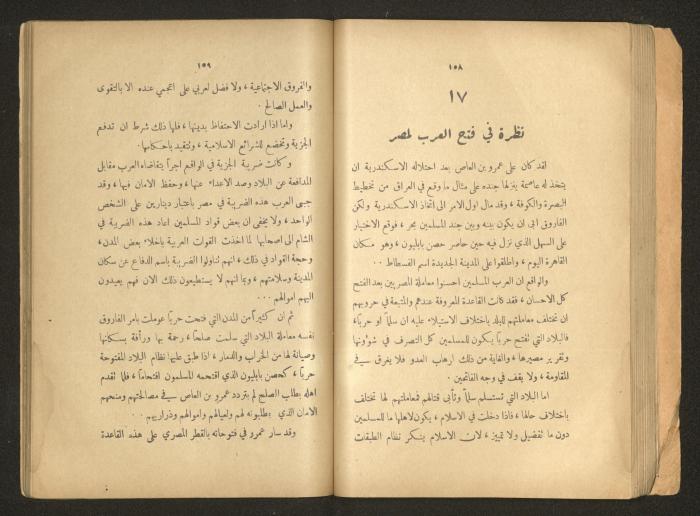 ١٥٨
١٧
نظرة في فتح العرب لمصر
لقد كان على عمرو بن العاص بعد احتلاله الاسكندرية ان
يتخذ له عاصمة ينزلها جنده على مثال ما وقع في العراق من تخطيط
البصرة والكوفة ، وقد مال اول الامر الى اتخاذ الاسكندرية ولكن
الفاروق ابى ان يكون بينه وبين جند المسلمين بحر ، فوقع الاختيار
على السهل الذي نزل فيه حين حاصر حصن بابليون ، وهو مكان
القاهرة اليوم ، واطلقوا على المدينة الجديدة اسم الفسطاط ٠٠
والواقع ان العرب المسلمين احسنوا معاملة المصريين بعد الفتح
كل الاحسان ، فقد كانت القاعدة المعروفة عندهم والمتبعة في حروبهم
ان تختلف معاملتهم للبلد باختلاف الاستيلاء عليه ان سلماً او حرباً ،
فالبلاد التي تفتح حرباً يكون للمسلمين كل التصرف في شؤونها
وتقرير مصيرها ، والغاية من ذلك ارهاب العدو فلا يغرق في
المقاومة ، ولا يقف في وجه الفاتحين ٠
اما البلاد التي تستسلم سلماً وتأبى قتالهم فمعاملتهم لها تختلف
باختلاف حالها ، فاذا دخلت في الاسلام ، يكون لاهلها ما للمسلمين
دون ما تفضيل ولا تمييز ، لان الاسلام ينكر نظام الطبقات
١٥٩
والفروق الاجتماعية ، ولا فضل لعربي على اعجمي عنده الا بالتقوى
والعمل الصالح ٠
واما اذا ارادت الاحتفاظ بدينها ، فلها ذلك شرط ان تدفع
الجزية وتخضع للشرائع الاسلامية ، وتتقيد باحكامها ٠
وكانت ضريبة الجزية في الواقع اجراً يتقاضاه العرب مقابل
المدافعة عن البلاد وصد الاعداء عنها ، وحفظ الامان فيها ، وقد
جبى العرب هذه الضريبة في مصر باعتبار دينارين على الشخص
الواحد ، ولا يخفى ان بعض قواد المسلمين اعاد هذه الضريبة في
الشام الى اصحابها لما اخذت القوات العربية باخلاء بعض المدن ،
وحجة القواد في ذلك ، انهم تناولوا الضريبة باسم الدفاع عن سكان
المدينة وسلامتهم ، وبما انهم لا يستطيعون ذلك الان فهم يعيدون
اليهم اموالهم ٠٠٠
ثم ان كثيراً من المدن التي فتحت حرباً عوملت بامر الفاروق
نفسه معاملة البلاد التي سلمت صلحاً ، رحمة بها ورأفة بسكانها
وصيانة لها من الخراب والدمار ، اذا طبق عليها نظام البلاد المفتوحة
حرباً ، كحصن بابليون الذي اقتحمه المسلمون اقتحاماً ، فلما تقدم
اهله بطلب الصلح لم يتردد عمرو بن العاص في مصالحتهم ومنحهم
الامان الذي يطلبونه لهم ولعيالهم واموالهم وذراريهم ٠٠
وقد سار عمرو في فتوحاته بالقطر المصري على هذه القاعدة